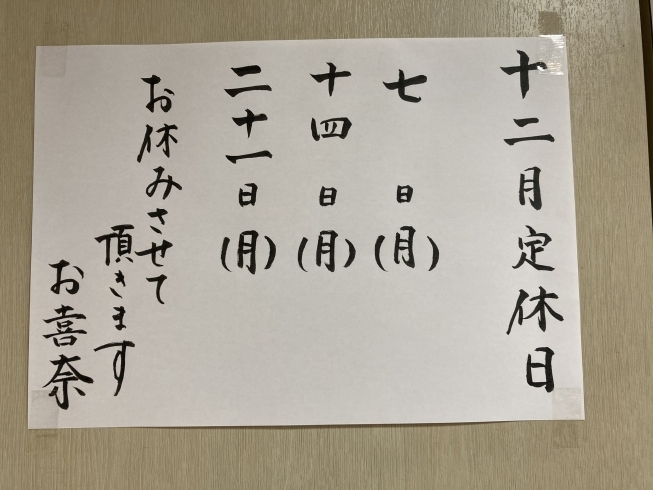 十二月定休日
七日(月)
十四日(月)
二十一日(月)
お休みさせて
頂きます
お喜奈